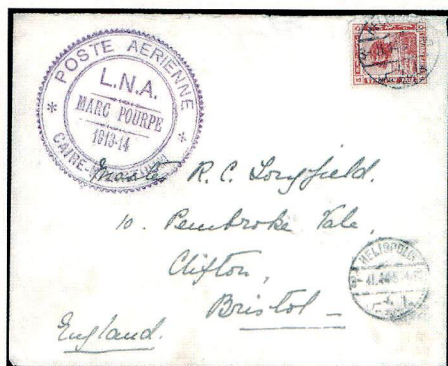 POSTE AERIENNE
L.N.A.
MARC POURPE
1913-14
Master R. C. Longfield.
10. Pembroke Vale,
Clifton,
Bristol —
England.
HELIOPOLIS